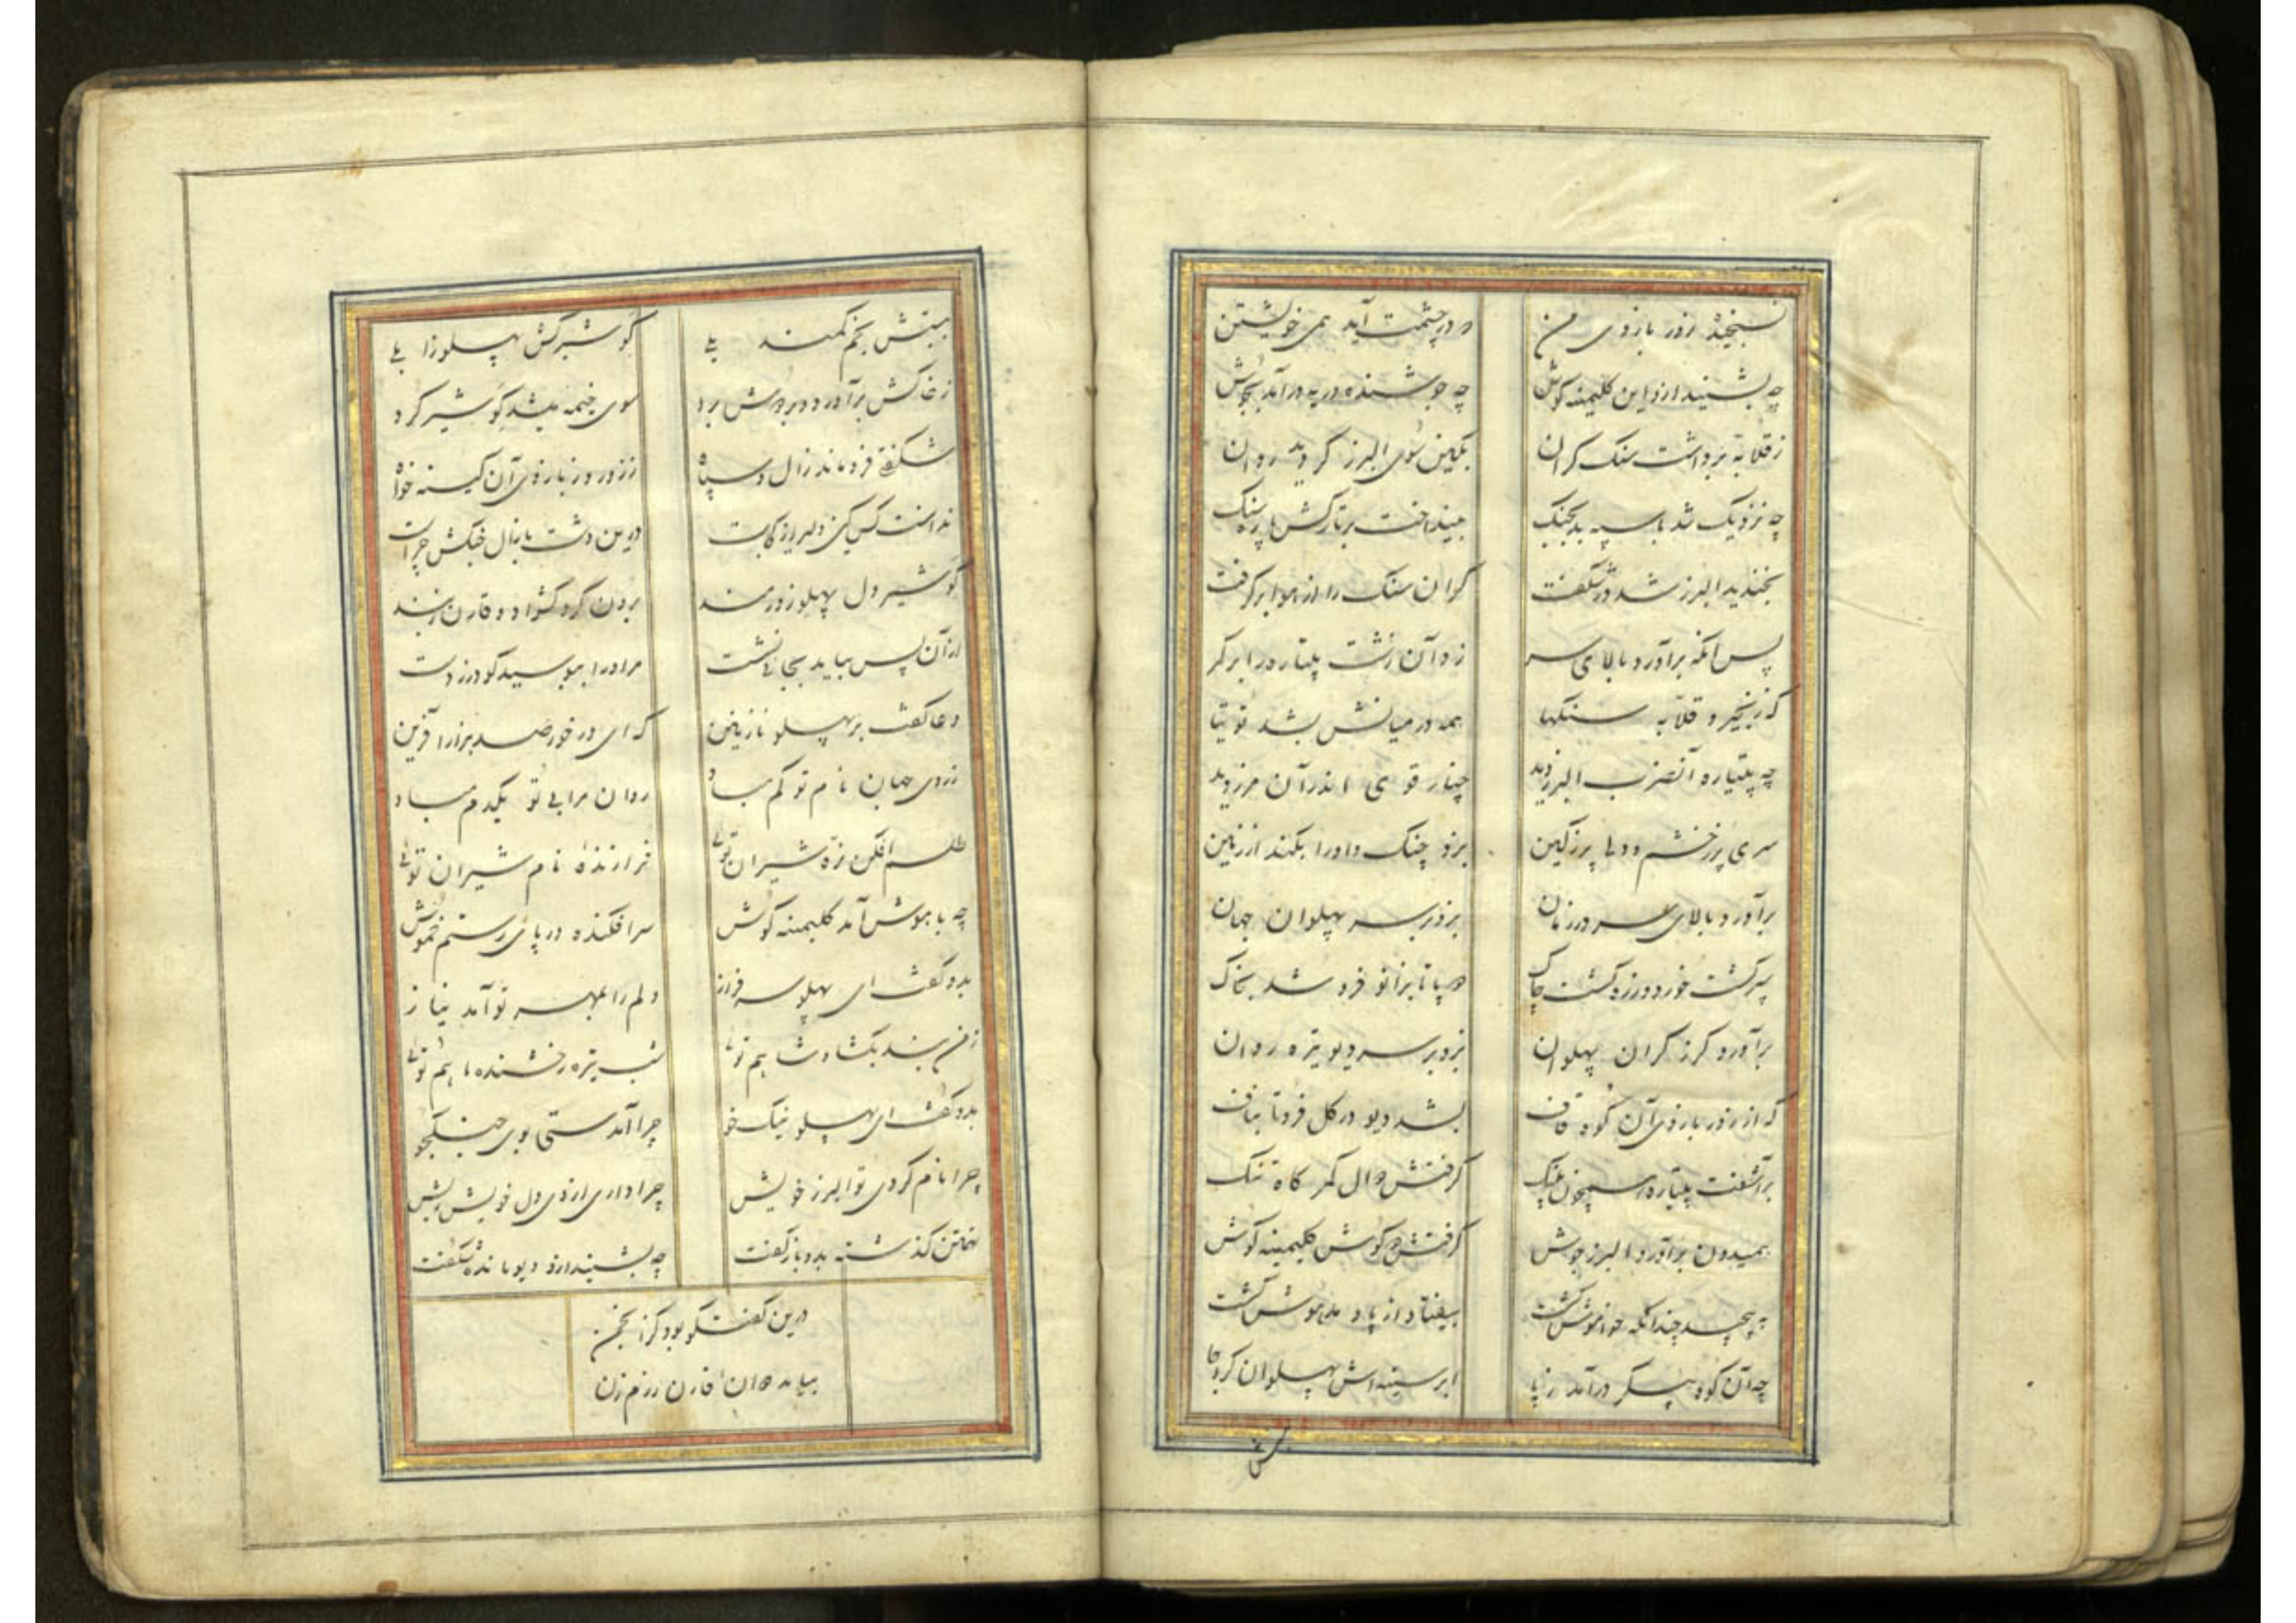 نسنجیده زور بازوی من که در چشمت آید همی خویشتن
چه بشنید ازو این کلیمینه گوش چه جوشنده دریه درآمد بجوش
ز قلابه برداشت سنک کران بکین سوی البرز کردید روان
چه نزدیک شد با سپه بد بجنک بینداخت بر تارکش پاره سنک
بخندید البرز شد در شکفت کران سنک را از هوا بر کرفت
پس آنکه برآورد بالای سر زد آن زشت پلیتاره را بر کمر
که زنجیر و قلابه سنکها همه در میانش بشد توتیا
چه پلیتاره آنضرب البرز دید چنار قوی اندر آن مرز دید
سری پر ز خشم و دلی پر ز کین بزد چنک و او را بکند از زمین
برآورد بالای سر در زمان بزد بر سر پهلوان جهان
سپر کشت خورد و زره کشت چاک دو پا تا بزانو فرو شد بخاک
برآورد کرز کران پهلوان بزد بر سر دیو تیره روان
که از زور بازوی آن کوه قاف بشد دیو در کل فرو تا بناف
برآشفت پلیتاره همچون پلنک کرفتش دوال کمر کاه تنک
همیدون برآورد البرز جوش کرفتش دو کوش کلیمینه کوش
به پیچید چندانکه خواموش کشت بیفتاد از پا و مدهوش کشت
چه آن کوه پیکر درآمد ز پا ابر سینه اش پهلوان کرد جا
ببستش
ببستش بخم کمند یلی کو شیرکش پهلو زابلی
ز خاکش برآورد و بردش برد سوی خیمه بلشد کو شیر کرد
شکفتی فرو ماند زال و سپاه ز زور و ز بازوی آن کینه خواه
ندانست کس کین دلیر از کجاست درین دشت با زال جنکش چراست
کو شیر دل پهلو زورمند برون کرد کشواد و قارن ز بند
از آن پس بیامد بجای نشست مر او را ببوسید کودرز دست
دعا کفت بر پهلو نازنین که ای در خور صد هزار آفرین
ز روی جهان نام تو کم مباد روان مرا بی تو یکدم مباد
طلسم افکن نره شیران توئی فرازنده نام شیران توئی
چه با هوش آمد کلیمینه کوش سر افکنده در پای رستم خموش
بدو کفت ای پهلو سرفراز دلم را بمهر تو آمد نیاز
ز من بند بکشا و شاهم توئی شب تیره رخشنده ماهم توئی
بدو کفت ای پهلو نیک خو چرا آمدستی بوی جنکجو
چرا نام کردی تو البرز خویش چرا داری از وی دل خویش ریش
سخن کذشته بدو باز کفت چه بشنید ازو دیو مانده شکفت
درین کفتکو بود کز انجمن
بیامد دوان قارن رزم زن